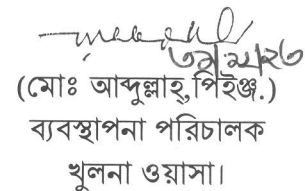 (মোঃ আব্দুল্লাহ্,পিইঞ্জ.)
ব্যবস্থাপনা পরিচালক
খুলনা ওয়াসা।